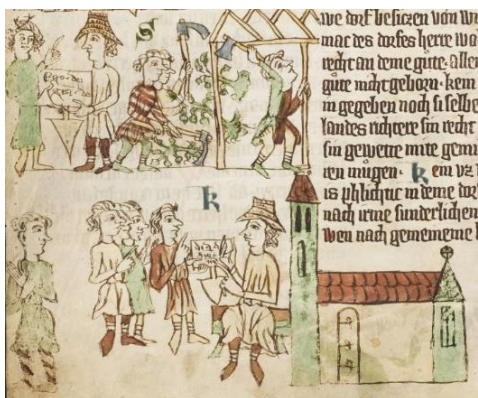 S
we dorf besiczen von wi
mac des dorfes herre wo
recht an deme gute. alle
gute nicht geborn. kem
in gegeben noch si selbe
landes richtere sin recht
sin gewette mite
ren mugen. k em vz
is phlichtic in deme dor
nach irme sunderlichen
wen nach gemeineme
k